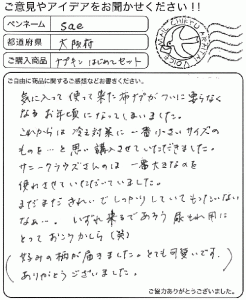 ご意見やアイデアをお聞かせください!!
ペンネーム sae
都道府県 大阪府
ご購入商品 ナプキンはじめてセット
ご自由に商品に関するご感想などお書きください。
気に入って使って来た布ナプがついに要らなく
なるお年頃になってしまいました。
これからは冷え対策に一番小さいサイズの
ものを…と思い購入させていただきました。
サニークラウズさんのは一番大きなのを
使わさせていただいていました。
まだまだきれいでしっかりしていてもったいない
なぁ…。いずれ来るであろう尿もれ用に
とっておこうかしら(笑)
(好みの柄が届きました。とても可愛いです。
ありがとうございました。)
ご協力ありがとうございました。